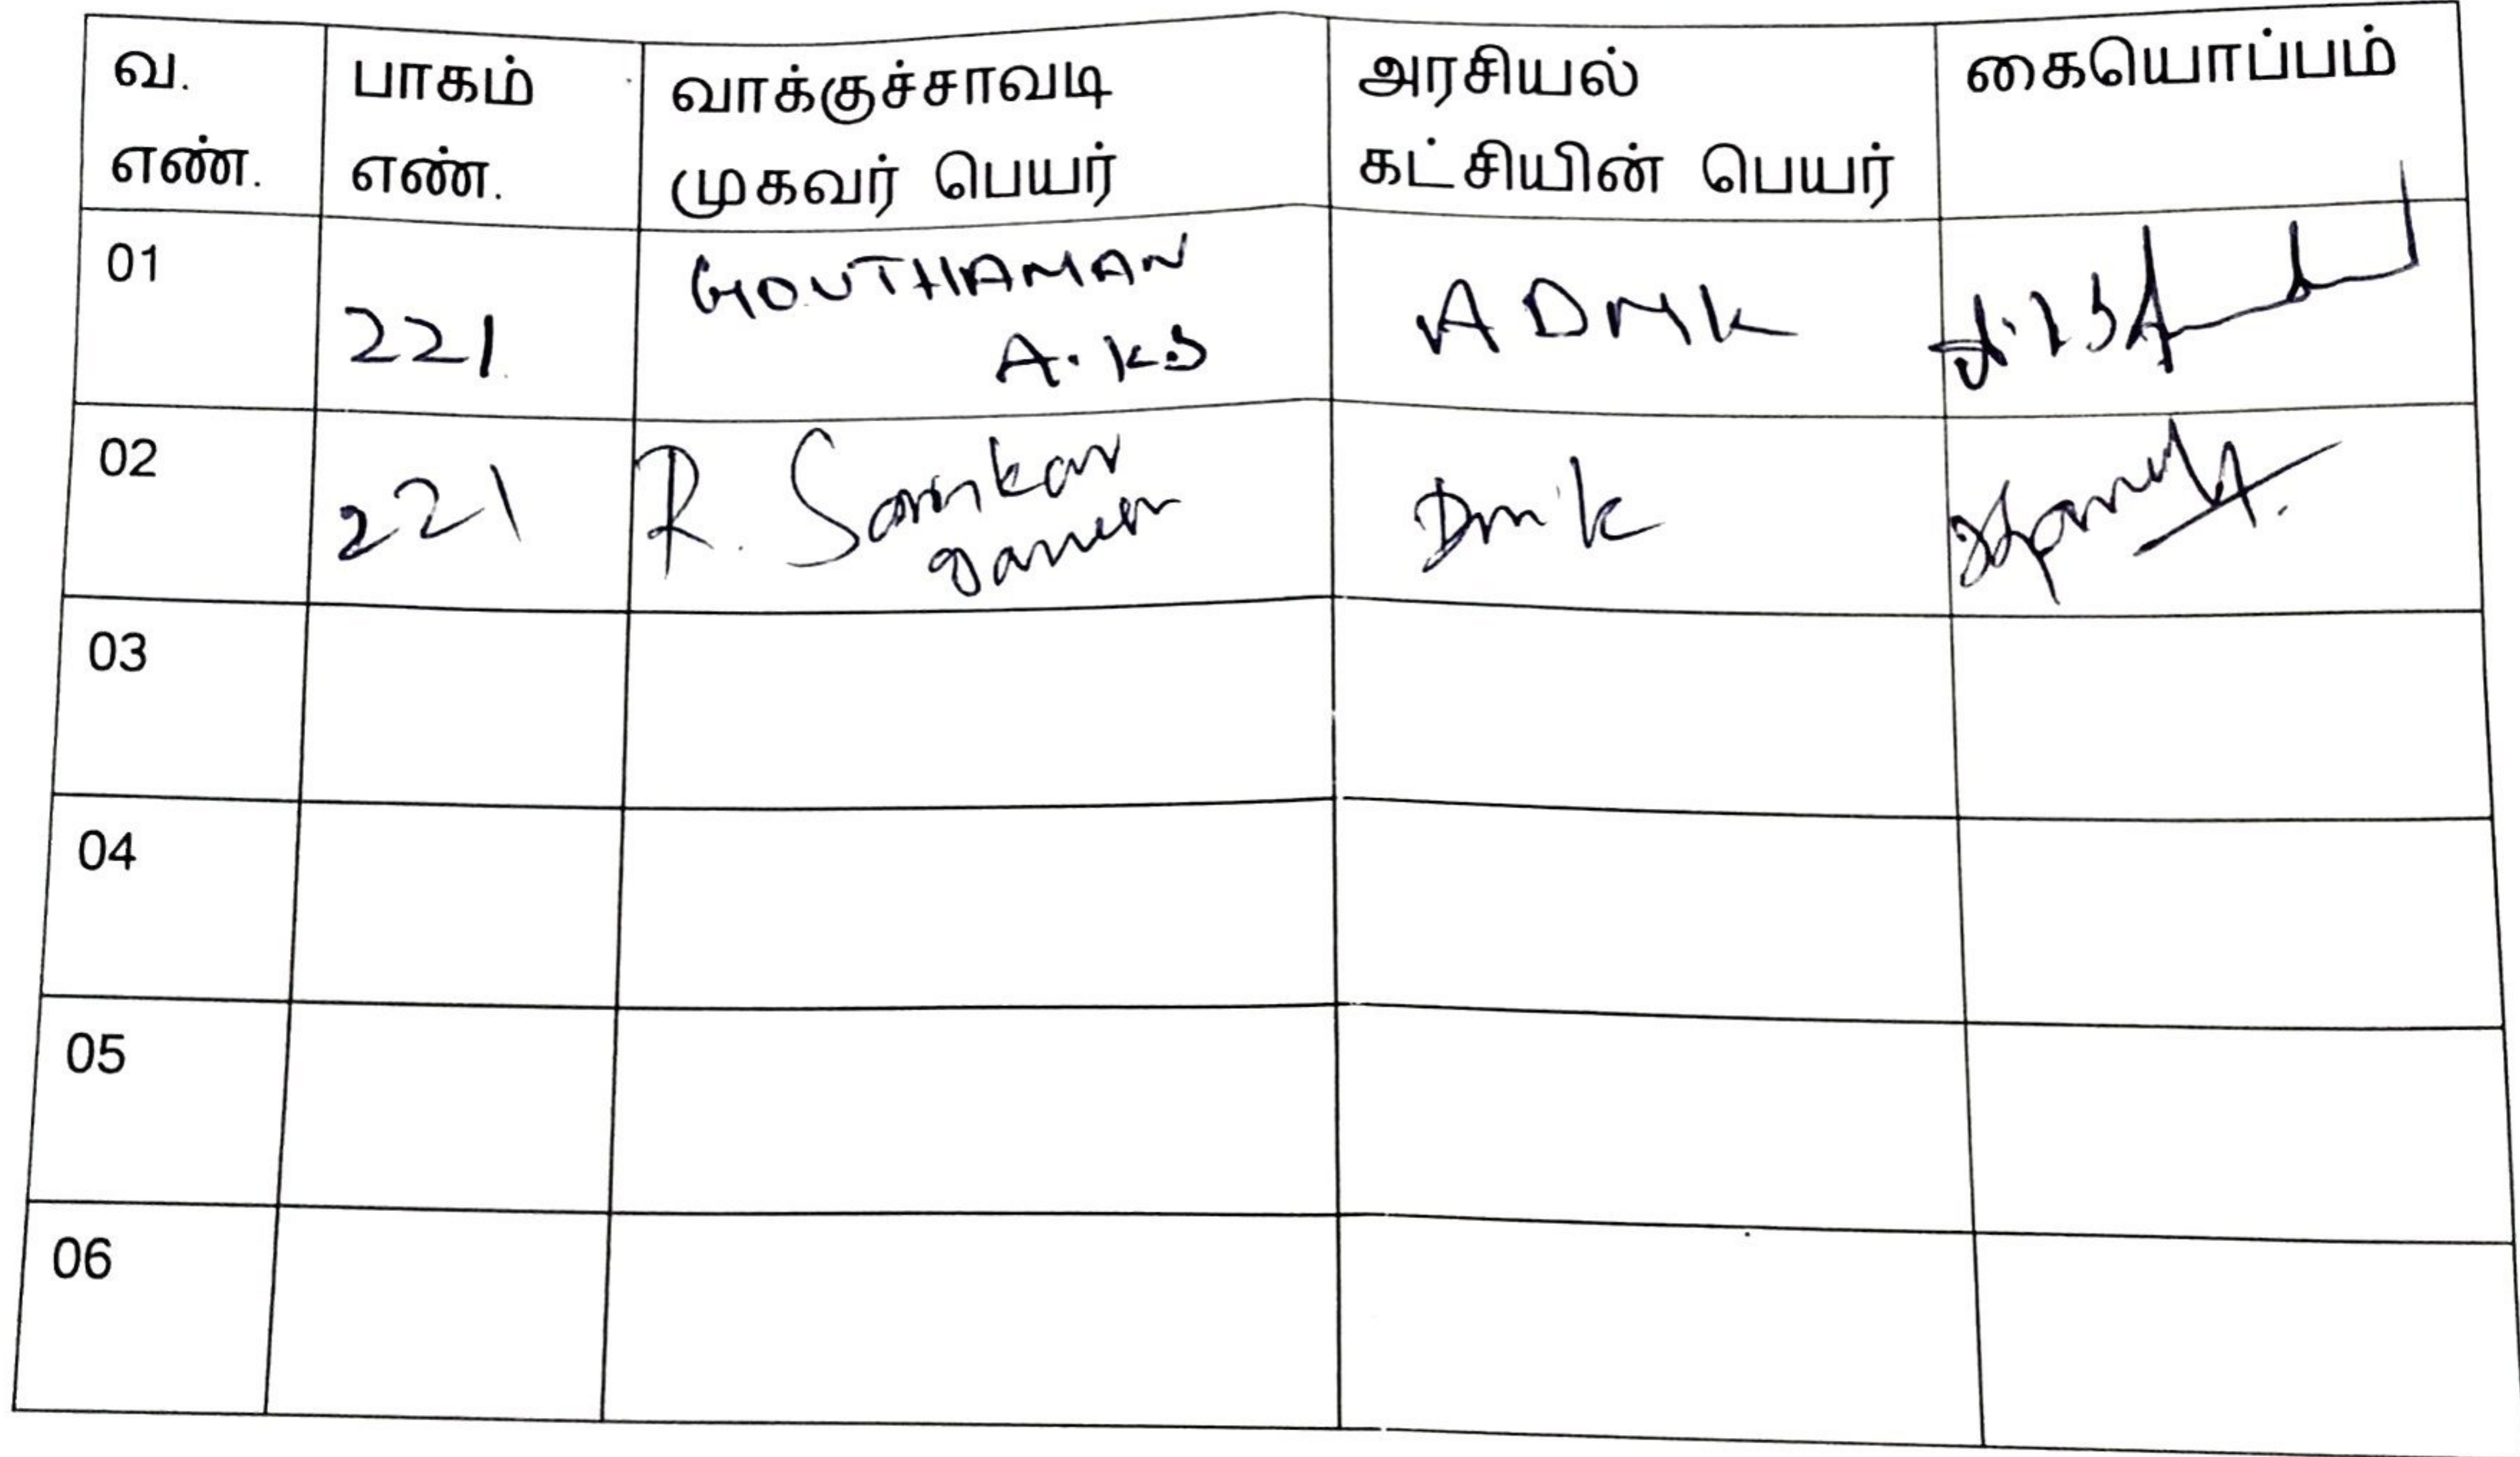 வ. எண்.
பாகம் எண்.
வாக்குச்சாவடி முகவர் பெயர்
அரசியல் கட்சியின் பெயர்
கையொப்பம்
01
221
GOUTHAMAN
A.KS
ADMK
02
221
R. Sankar
Dmk
03
04
05
06